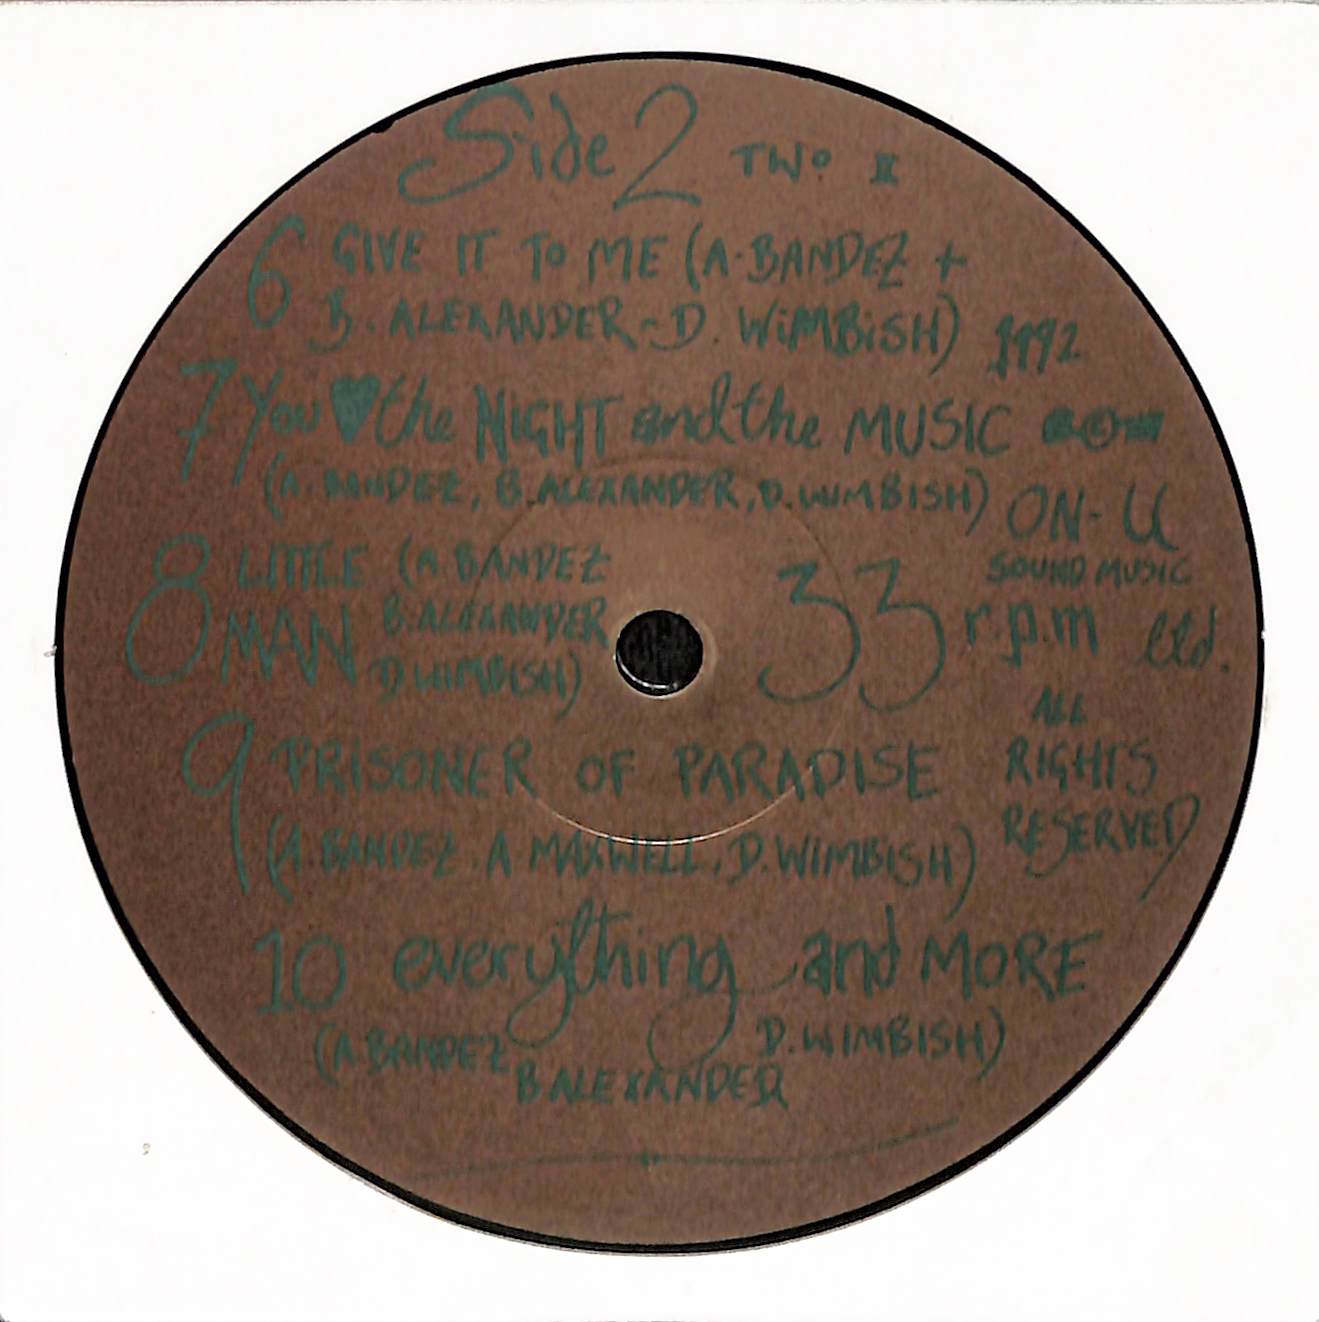 Side 2 TWO II
6 GIVE IT TO ME (A. BANDEZ +
B. ALEXANDER - D. WiMBiSH) 1992
7 You ♥ the NIGHT and the MUSIC
(A. BANDEZ, B. ALEXANDER, D. WIMBISH)
ON-U
SOUND MUSIC
ltd.
8 LITTLE MAN (A. BANDEZ
B. ALEXANDER
D. WIMBISH)
33 r.p.m
ALL
RIGHTS
RESERVED
9 PRISONER OF PARADISE
(A. BANDEZ. A MAXWELL, D. WIMBISH)
10 everything and MORE
(A. BANDEZ
B ALEXANDER
D. WIMBISH)